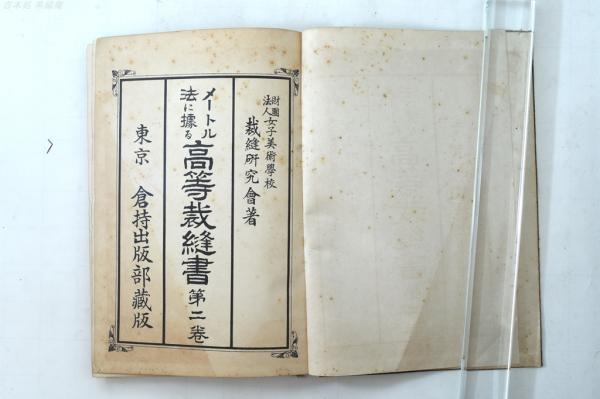 財團法人女子美術學校
裁縫研究會著
メートル法に據る
高等裁縫書 第二卷
東京 倉持出版部藏版